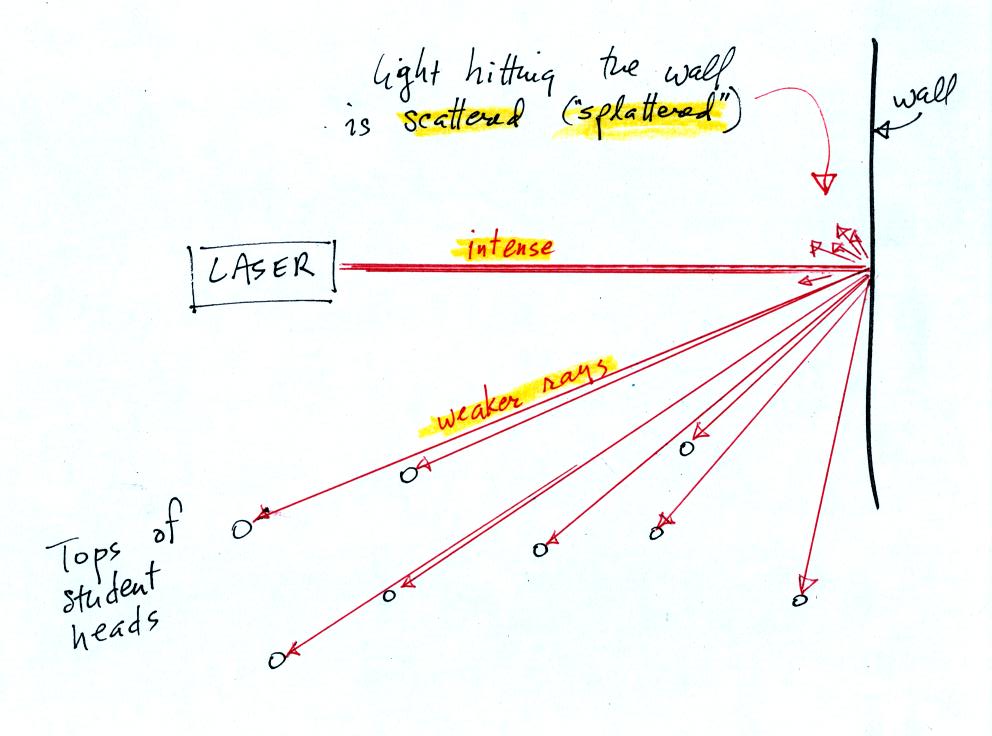 light hitting the wall
is scattered ("splattered")
wall
intense
LASER
weaker rays
Tops of
student
heads